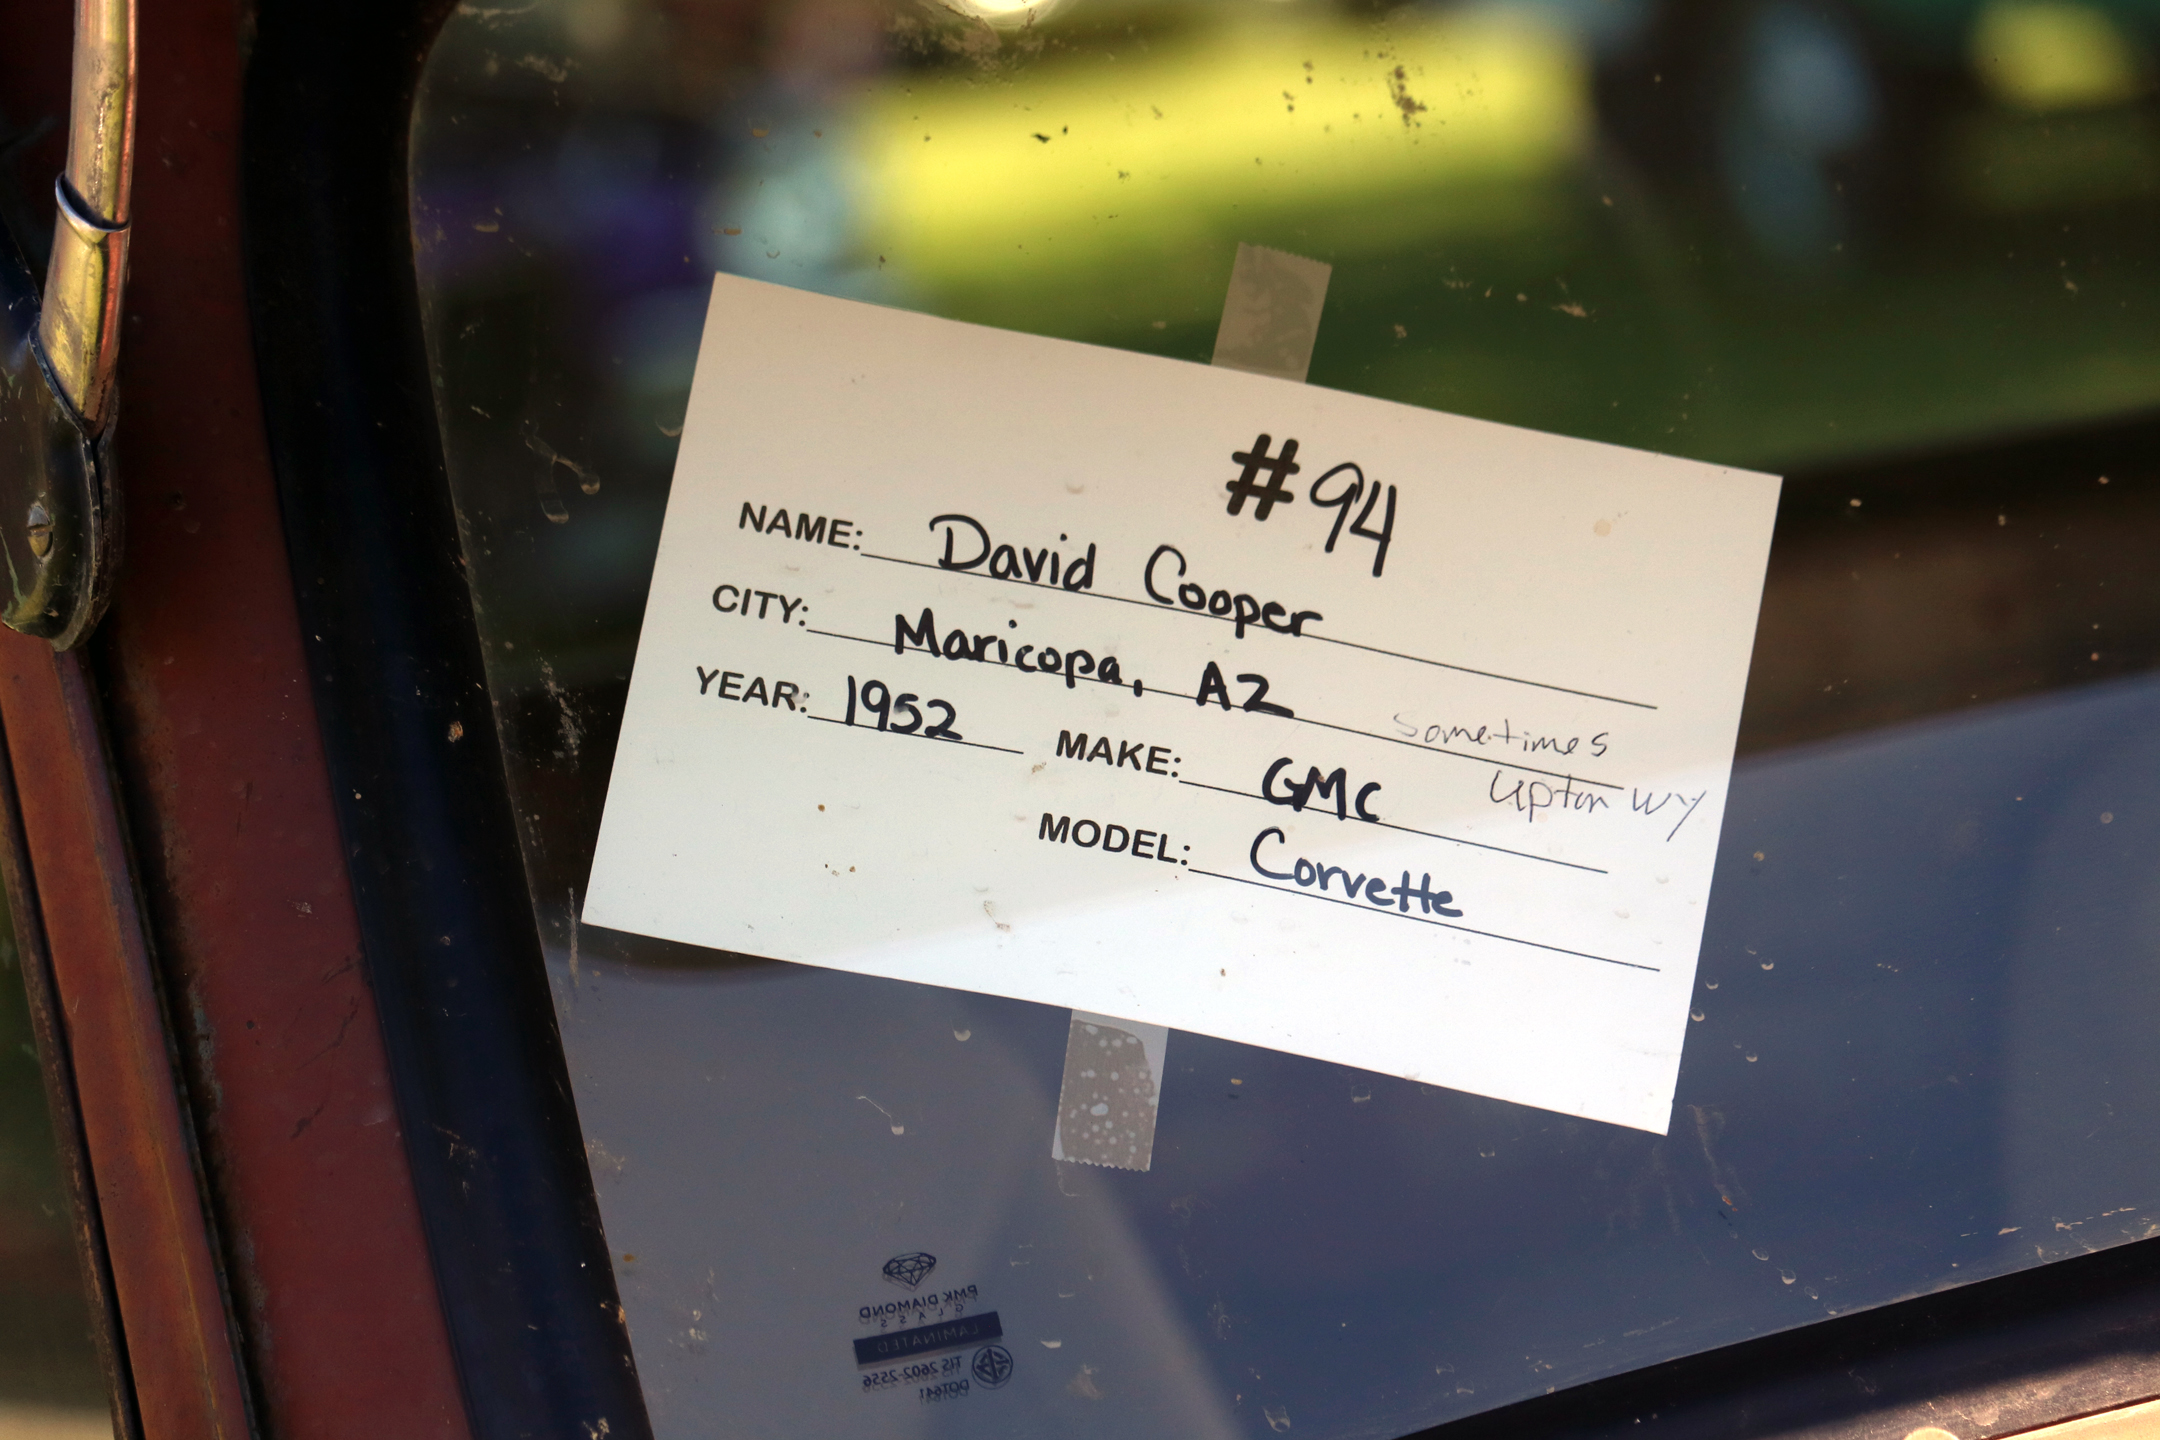 #94
NAME: David Cooper
CITY: Maricopa, AZ
sometimes
Upton WY
YEAR: 1952 MAKE: GMC
MODEL: Corvette
PMK DIAMOND
GLASS
LAMINATED
TIS 2602-2556
DOT641